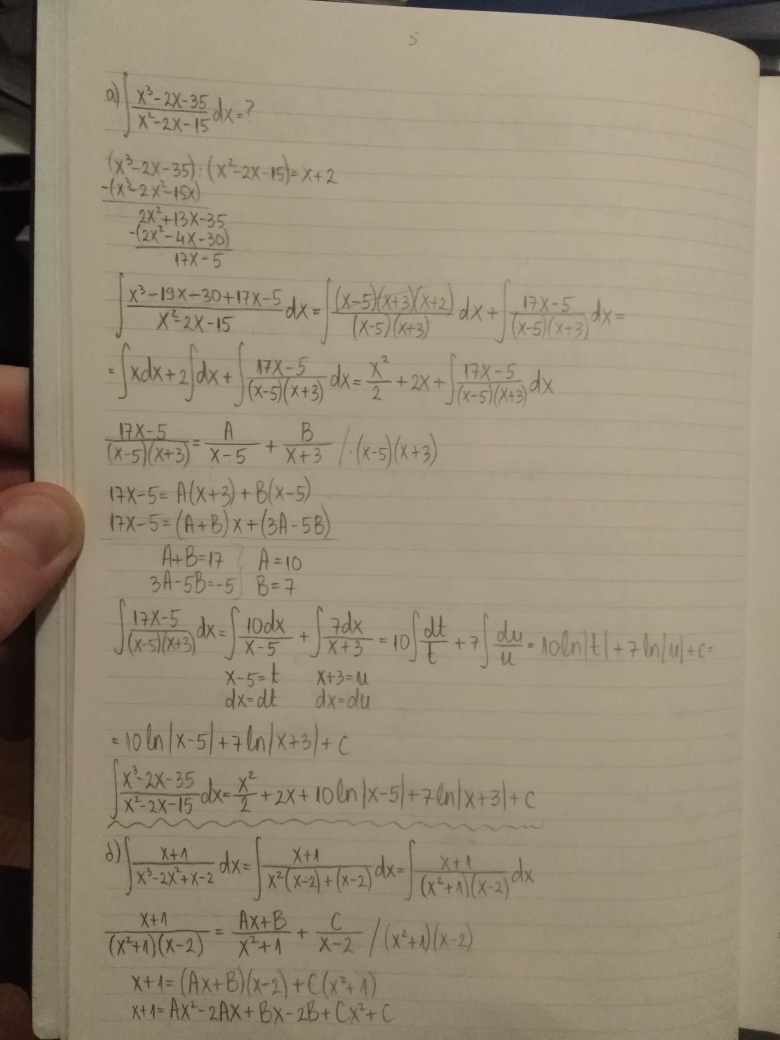 5
a) ∫ (x³-2x-35)/(x²-2x-15) dx=?
(x³-2x-35):(x²-2x-15)=x+2
-(x³-2x²-15x)
2x²+13x-35
-(2x²-4x-30)
17x-5
∫ (x³-19x-30+17x-5)/(x²-2x-15) dx=∫ ((x-5)(x+3)(x+2))/((x-5)(x+3)) dx+∫ (17x-5)/((x-5)(x+3)) dx=
=∫xdx+2∫dx+∫ (17x-5)/((x-5)(x+3)) dx= x²/2 +2x+∫ (17x-5)/((x-5)(x+3)) dx
(17x-5)/((x-5)(x+3)) = A/(x-5) + B/(x+3) /·(x-5)(x+3)
17x-5=A(x+3)+B(x-5)
17x-5=(A+B)x+(3A-5B)
A+B=17 } A=10
3A-5B=-5 } B=7
∫ (17x-5)/((x-5)(x+3)) dx=∫ 10dx/(x-5) +∫ 7dx/(x+3) =10∫ dt/t +7∫ du/u =10ln|t|+7ln|u|+C=
x-5=t x+3=u
dx=dt dx=du
=10ln|x-5|+7ln|x+3|+C
∫ (x³-2x-35)/(x²-2x-15) dx= x²/2 +2x+10ln|x-5|+7ln|x+3|+C
б) ∫ (x+1)/(x³-2x²+x-2) dx=∫ (x+1)/(x²(x-2)+(x-2)) dx=∫ (x+1)/((x²+1)(x-2)) dx
(x+1)/((x²+1)(x-2)) = (Ax+B)/(x²+1) + C/(x-2) /(x²+1)(x-2)
x+1=(Ax+B)(x-2)+C(x²+1)
x+1=Ax²-2Ax+Bx-2B+Cx²+C